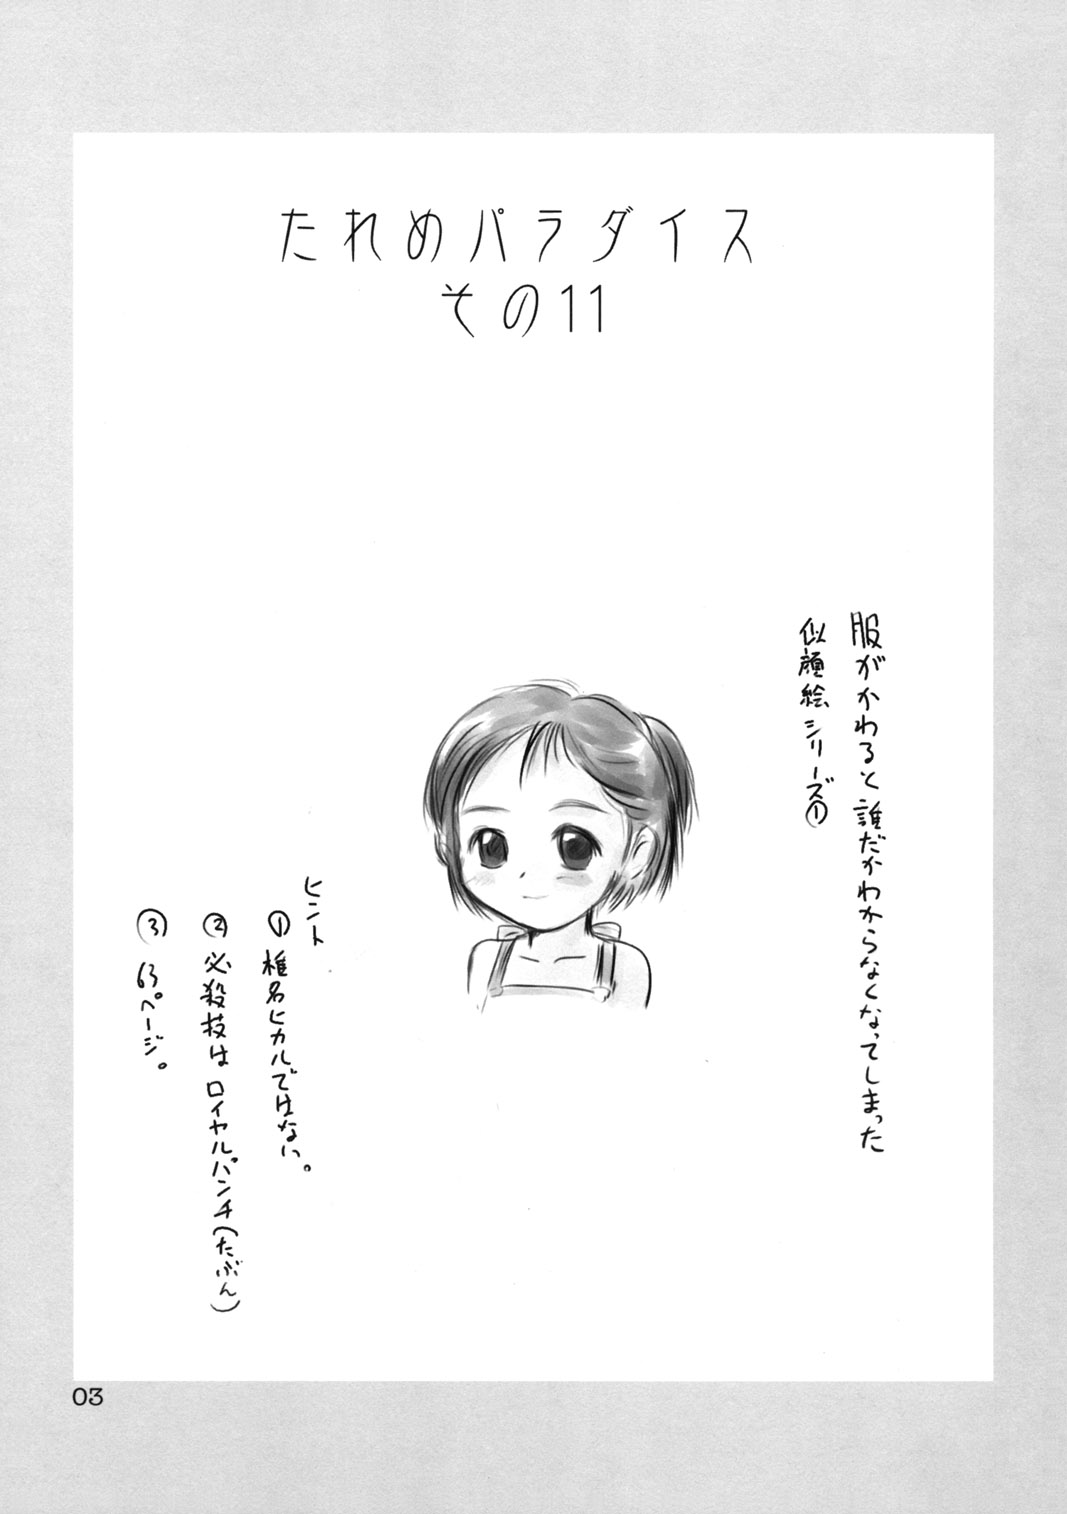 たれめパラダイス
その11
服がかわると誰だかわからなくなってしまった
似顔絵シリーズ①
ヒント
①椎名ヒカルではない。
②必殺技はロイヤルパンチ(たぶん)
③63ページ。
03